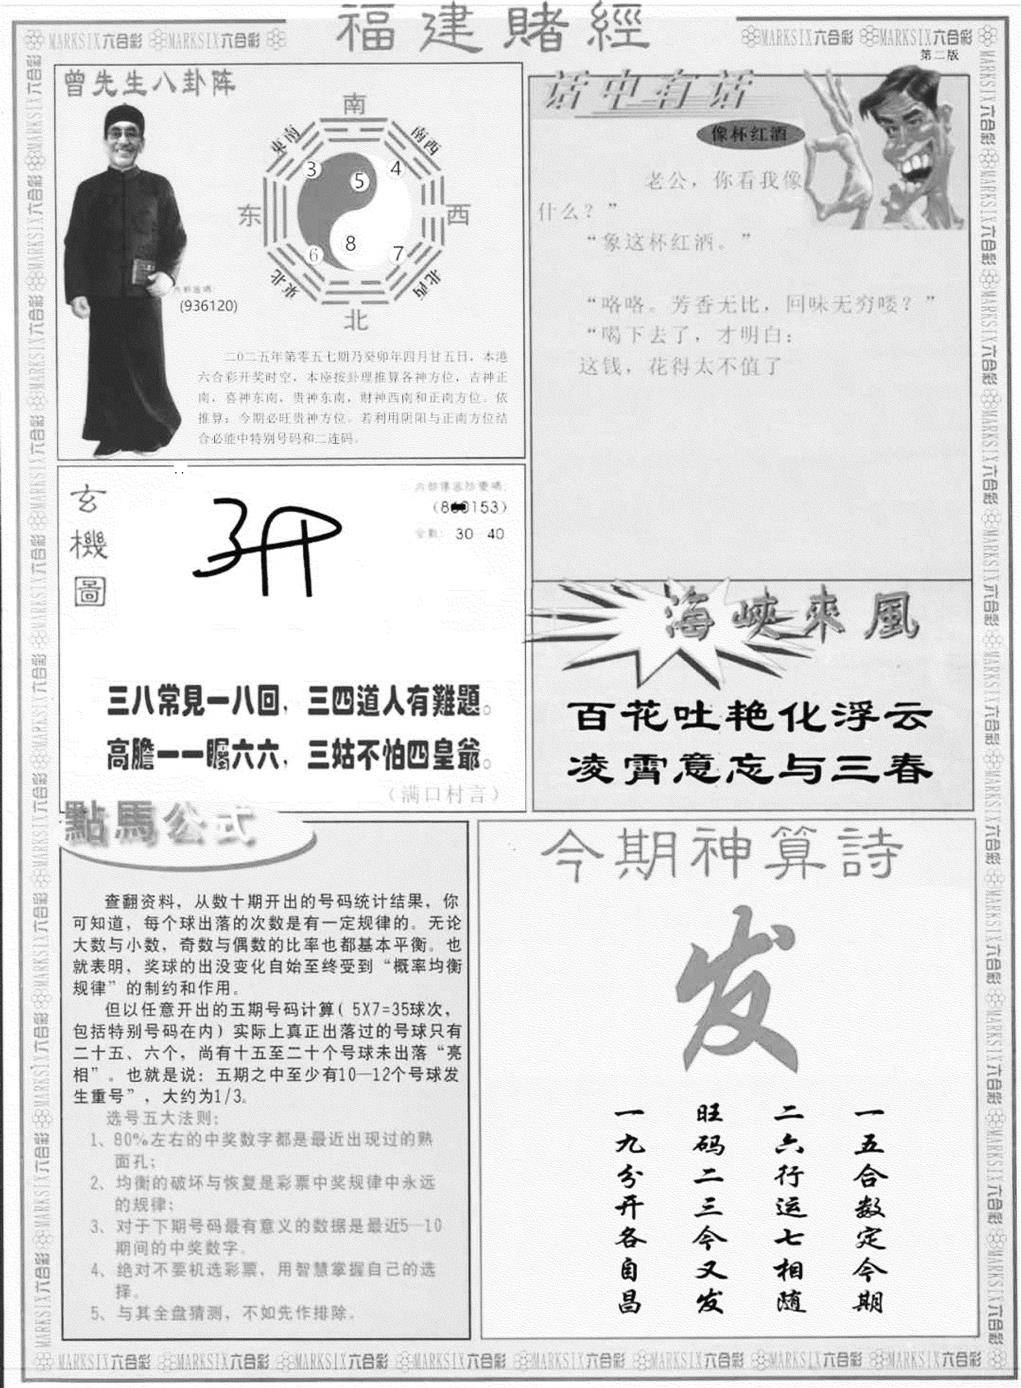 福建賭經
MARKSIX六合彩 MARKSIX六合彩
MARKSIX六合彩 MARKSIX六合彩
第二版
曾先生八卦阵
南
東南 南西
3 5 4
东 西
6 8 7
東北 北西
北
(936120)
二０二五年第零五七期乃癸卯年四月廿五日，本港
六合彩开奖时空，本座按卦理推算各神方位，吉神正
南，喜神东南，贵神东南，财神西南和正南方位。依
推算：今期必旺贵神方位。若利用阴阳与正南方位结
合必能中特别号码和二连码。
话中有话
像杯红酒
老公，你看我像
什么？”
“象这杯红酒。”
“咯咯。芳香无比，回味无穷喽？”
“喝下去了，才明白：
这钱，花得太不值了
玄機圖
0153)
30 40
三八常見一八回，三四道人有難題。
高膽一一矚六六，三姑不怕四皇爺。
（满口村言）
海峽來風
百花吐艳化浮云
凌霄意忘与三春
點馬公式
查翻资料，从数十期开出的号码统计结果，你
可知道，每个球出落的次数是有一定规律的。无论
大数与小数，奇数与偶数的比率也都基本平衡。也
就表明，奖球的出没变化自始至终受到“概率均衡
规律”的制约和作用。
但以任意开出的五期号码计算( 5X7=35球次，
包括特别号码在内) 实际上真正出落过的号球只有
二十五、六个，尚有十五至二十个号球未出落“亮
相”。也就是说：五期之中至少有10—12个号球发
生重号”，大约为1/3。
选号五大法则：
1、80%左右的中奖数字都是最近出现过的熟
面孔；
2、均衡的破坏与恢复是彩票中奖规律中永远
的规律；
3、对于下期号码最有意义的数据是最近5—10
期间的中奖数字。
4、绝对不要机选彩票，用智慧掌握自己的选
择。
5、与其全盘猜测，不如先作排除。
今期神算詩
发
一五合数定今期
二六行运七相随
旺码二三今又发
一九分开各自昌
MARKSIX六合彩 MARKSIX六合彩 MARKSIX六合彩 MARKSIX六合彩 MARKSIX六合彩 MARKSIX六合彩 MARKSIX六合彩 MARKSIX六合彩